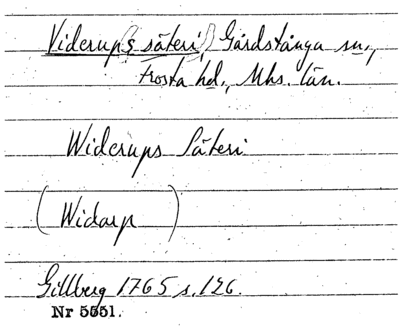 Viderups säteri, Gårdstånga sn.,
Frosta hd., Mhs. län.
Widerups Säteri
(Widarp)
Gillberg 1765 s. 126.
Nr 5551.